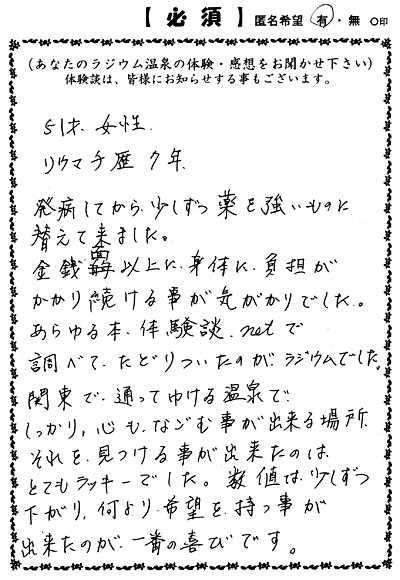 【必須】 匿名希望 有・無 ○印
(あなたのラジウム温泉の体験・感想をお聞かせ下さい)
体験談は、皆様にお知らせする事もございます。
51才. 女性.
リウマチ歴 7年.
発病してから. 少しずつ 薬を強いものに
替えて来ました。
金銭面以上に. 身体に. 負担が
かかり続ける事が気がかりでした。
あらゆる本. 体験談. netで
調べて. たどりついたのが. ラジウムでした。
関東で. 通ってゆける温泉で
しっかり, 心も. なごむ事が出来る場所.
それを. 見つける事が出来たのは
とてもラッキーでした。 数値は. 少しずつ
下がり, 何より. 希望を. 持つ事が
出来たのが. 一番の喜びです。